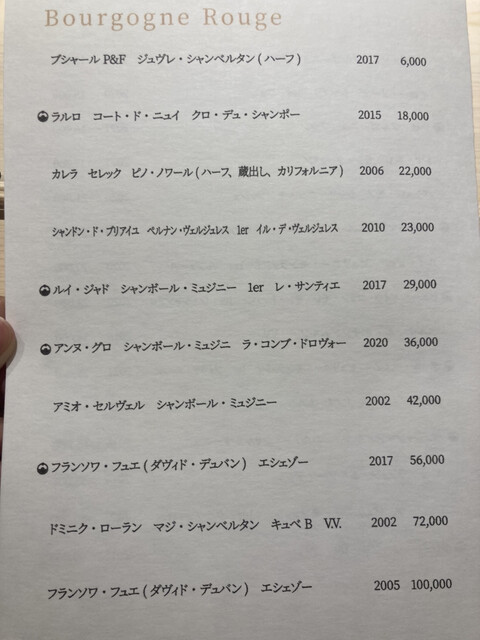 Bourgogne Rouge
ブシャール P&F ジュヴレ・シャンベルタン ( ハーフ ) 2017 6,000
ラルロ コート・ド・ニュイ クロ・デュ・シャンポー 2015 18,000
カレラ セレック ピノ・ノワール ( ハーフ、蔵出し、カリフォルニア ) 2006 22,000
シャンドン・ド・ブリアイユ ペルナン・ヴェルジュレス 1er イル・デ・ヴェルジュレス 2010 23,000
ルイ・ジャド シャンボール・ミュジニー 1er レ・サンティエ 2017 29,000
アンヌ・グロ シャンボール・ミュジニ ラ・コンブ・ドロヴォー 2020 36,000
アミオ・セルヴェル シャンボール・ミュジニー 2002 42,000
フランソワ・フュエ ( ダヴィド・デュバン ) エシェゾー 2017 56,000
ドミニク・ローラン マジ・シャンベルタン キュベ B V.V. 2002 72,000
フランソワ・フュエ ( ダヴィド・デュバン ) エシェゾー 2005 100,000